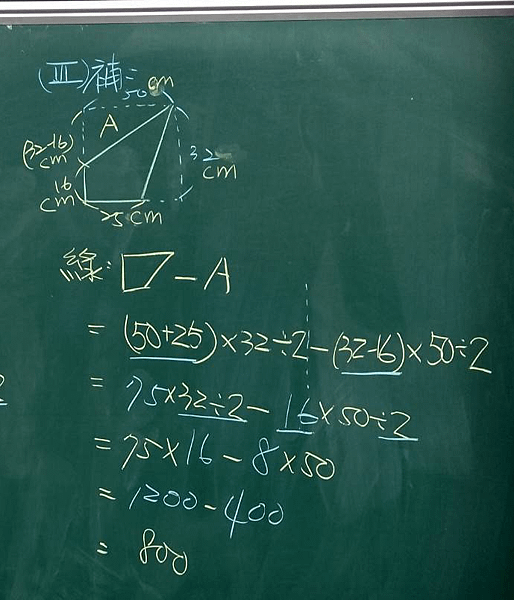 (III)補:
50 cm
A
(32-16) cm
32 cm
16 cm
25 cm
綠: - A
= (50+25)×32÷2-(32-16)×50÷2
= 75×32÷2-16×50÷2
= 75×16-8×50
= 1200-400
= 800